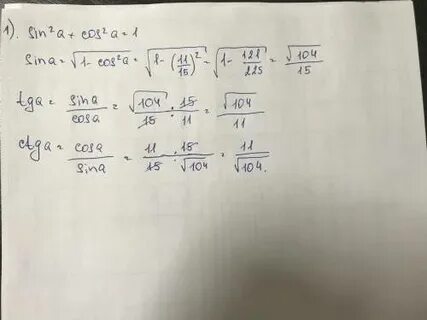 1). sin²a + cos²a = 1
sin a = √(1 - cos²a) = √(1 - (11/15)²) = √(1 - 121/225) = √104/15
tg a = sin a/cos a = √104/15 · 15/11 = √104/11
ctg a = cos a/sin a = 11/15 · 15/√104 = 11/√104.